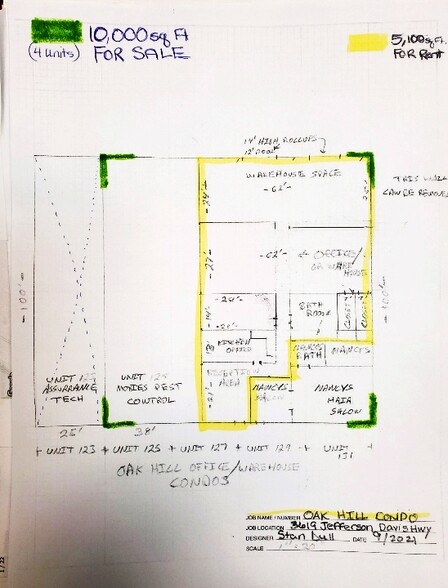 10,000 sq Ft
(4 Units) FOR SALE
5,100 sq Ft.
FOR Rent
14' HIGH ROLLUPS
12' DOOR
WAREHOUSE SPACE
-62'-
THIS WALL
CAN BE REMOVED
-24'-
-62'- ← OFFICE/
OR WARE
HOUSE
-27-
-100'-
-100'-
BATH
ROOM
CLOSET
CLOSET
-14-
-21-
KITCHEN
OFFICE
NANCYS
BATH
NANCYS
RECEPTION
AREA
-21-
UNIT 123
ASSURRANCE
TECH
UNIT 125
MOXIES PEST
CONTROL
NANCYS
SALON
NANCYS
HAIR
SALON
25'
38'
UNIT 123 + UNIT 125 + UNIT 127 + UNIT 129 + UNIT
131
OAK HILL OFFICE/WAREHOUSE
CONDOS
JOB NAME / NUMBER OAK HILL CONDO
JOB LOCATION 3619 Jefferson Davis Hwy
DESIGNER Stan Dull DATE 9/2021
SCALE